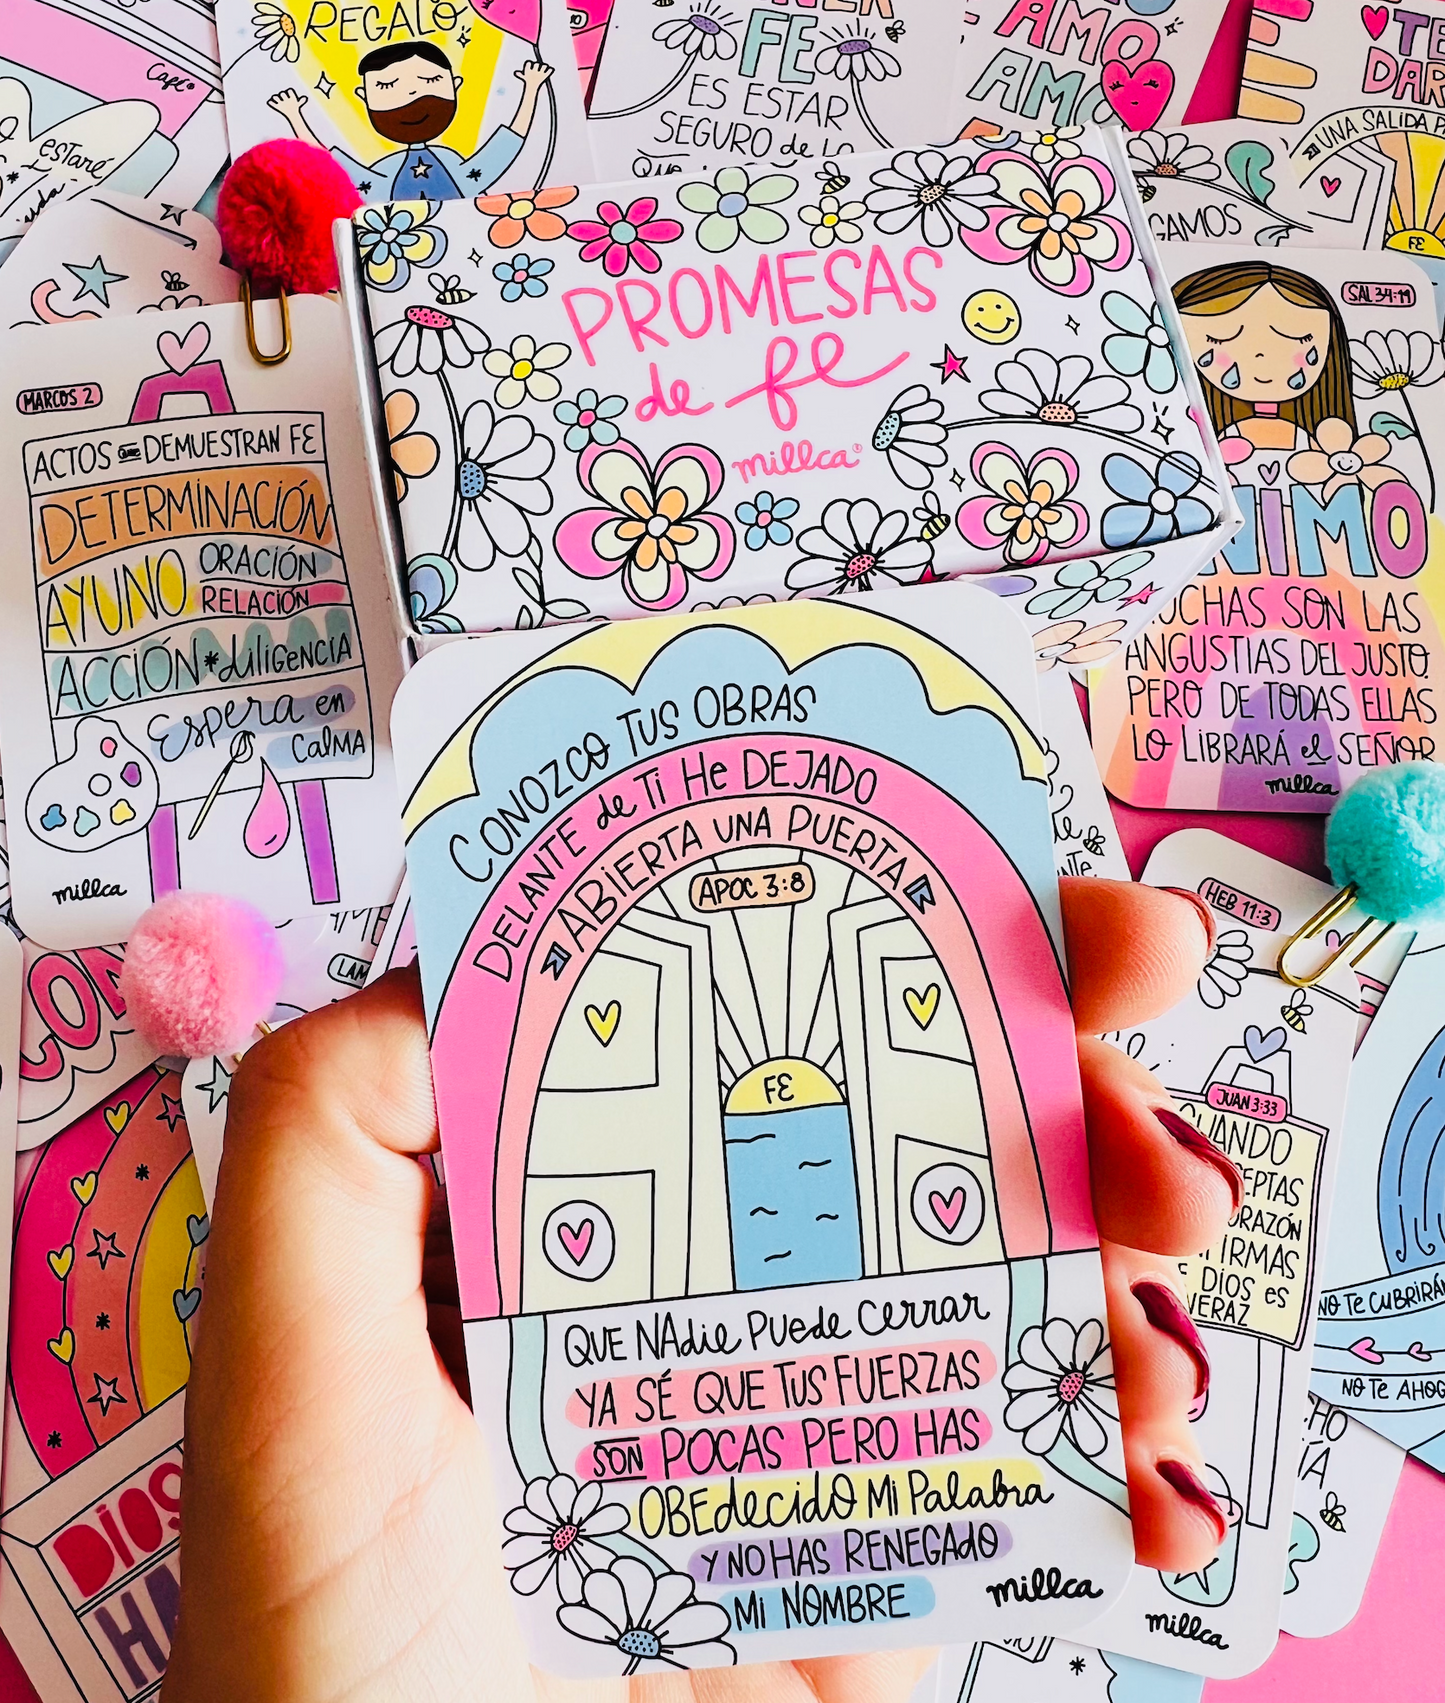 REGALO
FE
ES ESTAR
SEGURO de lo
Que
AMO
TE
UNA SALIDA
FE
Cape
estaré
PROMESAS
de fe
millca
SAL 34:19
MUCHAS SON LAS
ANGUSTIAS DEL JUSTO.
PERO DE TODAS ELLAS
LO LIBRARÁ el SEÑOR
millca
MARCOS 2
ACTOS QUE DEMUESTRAN FE
DETERMINACIÓN
AYUNO ORACIÓN
RELACIÓN
ACCIÓN * diligencia
Espera en
CalMA
millca
CONOZCO TUS OBRAS
DELANTE de Ti He DEJADO
ABIERTA UNA PUERTA
APOC 3:8
FE
QUE NAdie PUede cerrar
YA SÉ QUE TUS FUERZAS
SON POCAS PERO HAS
OBEdecidO Mi Palabra
Y NO HAS RENEGAdO
Mi NOMBRE
millca
HEB 11:3
JUAN 3:33
CUANDO
AFIRMAS
DIOS es
VERAZ
millca
NO Te CUBRIRÁN
NO Te AHOG
DIOS